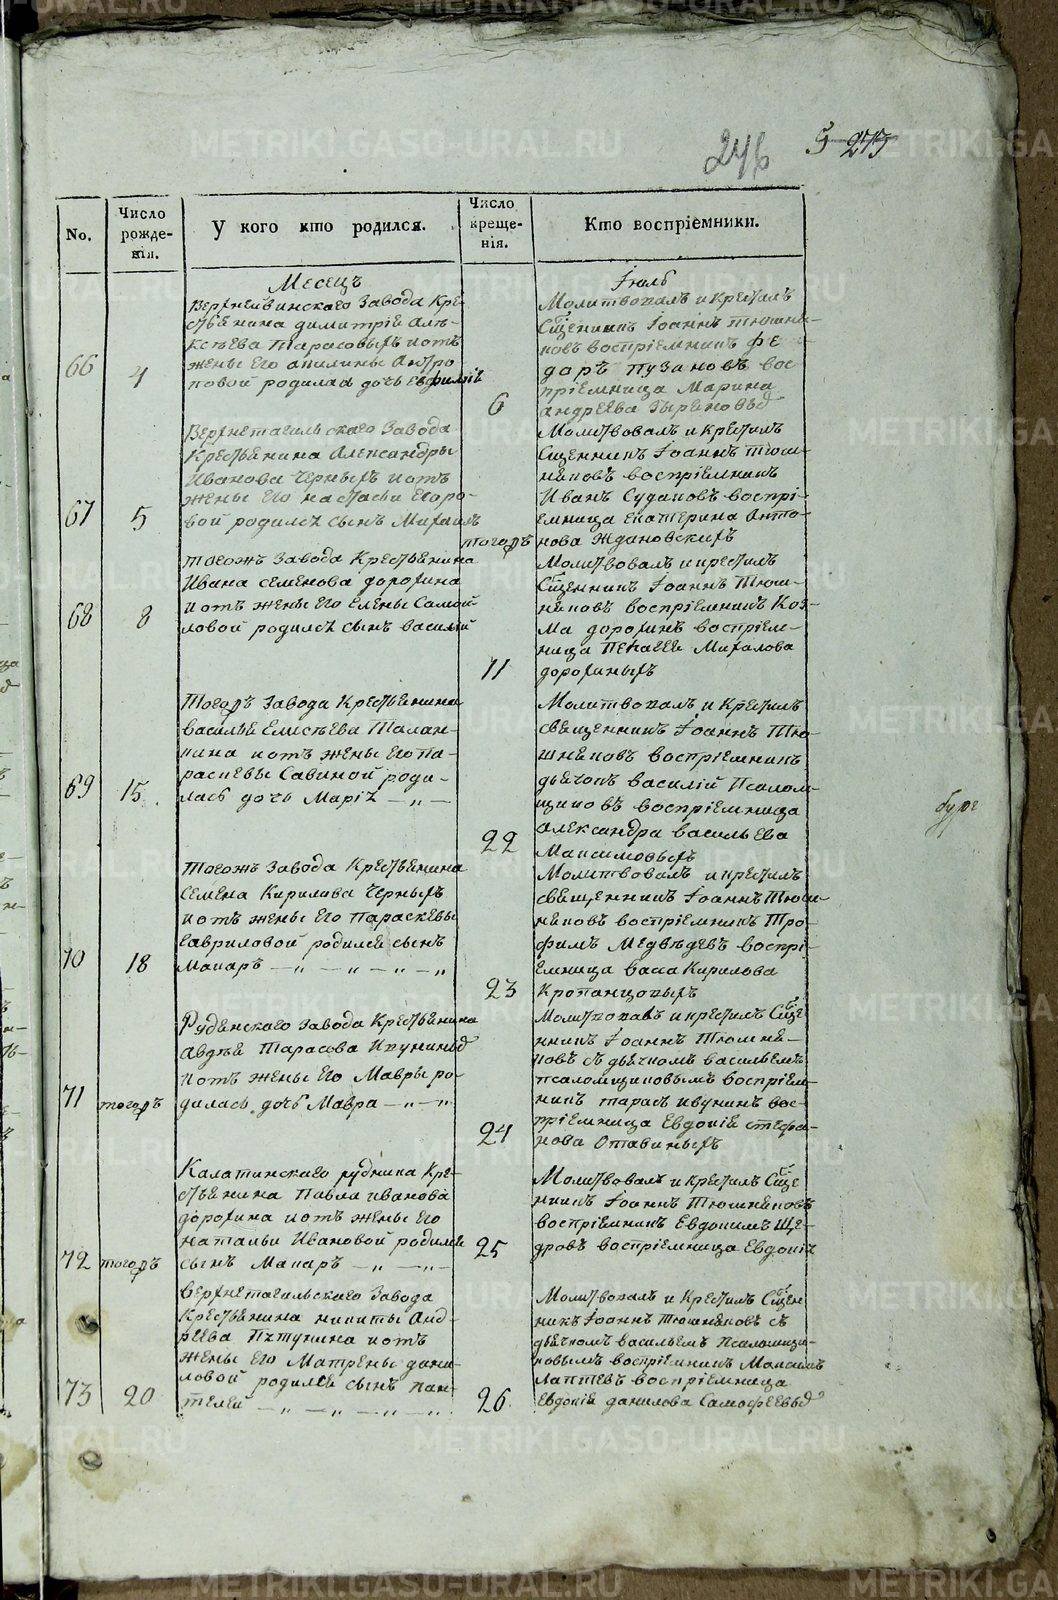 246 5 273
No.
Число рожде- нія.
У кого кто родился.
Число креще- нія.
Кто воспріемники.
Месецъ
Іюль
66
4
Верхнейвинскаго Завода Кре-
стьянина димитрія Алѣ-
ксѣева Тарасовыхъ и отъ
жены Его Апилины Антро
повой родилась дочь Евфимія
6
Молитвовалъ и Крестилъ
Сщенникъ Іоаннъ Тюшня-
ковъ воспріемникъ Фе
доръ Пузановъ вос
пріемница Марина
Андреева Зыряновыхъ
67
5
Верхнетагильскаго Завода
Крестьянина Александры
Иванова Черныхъ и отъ
жены Его настасьи Егоро-
вой родился сынъ Михаилъ
тогожъ
Молитвовалъ и Крестилъ
Сщенникъ Іоаннъ Тюш-
няковъ воспріемникъ
Иванъ Судаковъ воспрі-
емница Екатерина Анто-
нова Ждановскихъ
68
8
тогожъ Завода Крестьянина
Ивана семенова дорохина
и отъ жены Его Елены Самой-
ловой родился сынъ василій
11
Молитвовалъ и крестилъ
Сщенникъ Іоаннъ Тюш-
няковъ воспріемникъ Коз-
ма дорохинъ воспріем-
ница Пелагея Михалова
дорохиныхъ
69
15.
Тогожъ Завода Крестьянина
василья Елисѣева Талан-
кина и отъ жены Его Па-
раскевы Савиной роди-
лась дочь Марія — „ —
22
Молитвовалъ и Крестилъ
священникъ Іоаннъ Тю-
шняковъ воспріемникъ
дьячокъ василій Псалом-
щиковъ воспріемница
Александра васильева
Максимовыхъ
70
18
Тогожъ Завода Крестьянина
семена Кирилова Черныхъ
и отъ жены Его Параскевы
Гавриловой родился сынъ
Макаръ — „ — „ — „ — „
23
Молитвовалъ и крестилъ
священникъ Іоаннъ Тюш-
няковъ воспріемникъ Тро-
фимъ Медвѣдевъ воспрі-
емница васа Кирилова
Кропанцовыхъ
71
тогожъ
Руднянскаго Завода Крестьянина
Авдѣя Тарасова Икунина
и отъ жены Его Мавры ро-
дилась дочь Мавра — „ — „
24
Молитвовалъ и крестилъ Сще
нникъ Іоаннъ Тюшня-
ковъ съ дьячкомъ васильемъ
псаломщиковымъ воспріем-
никъ тарасъ икунинъ вос-
пріемница Евдокія стефа-
нова Отавиныхъ
72
тогожъ
Калатинскаго рудника Кре-
стьянина Павла иванова
дорохина и отъ жены Его
натальи Ивановой родился
сынъ Макаръ — „ — „ —
25
Молитвовалъ и крестилъ Сще
нникъ Іоаннъ Тюшняковъ
воспріемникъ Евдокимъ Ще-
дровъ воспріемница Евдокія
73
20
верхнетагильскаго Завода
Крестьянина никиты Анд-
реева Пятунина и отъ
жены Его Матрены дани-
ловой родился сынъ пан-
телей — „ — „ — „ — „
26.
Молитвовалъ и Крестилъ Сщен
никъ Іоаннъ Тюшняковъ съ
дьячкомъ васильемъ Псаломщи-
ковымъ воспріемникъ Максимъ
Лаптевъ воспріемница
Евдокія данилова Самофеевыхъ
METRIKI.GASO-URAL.RU